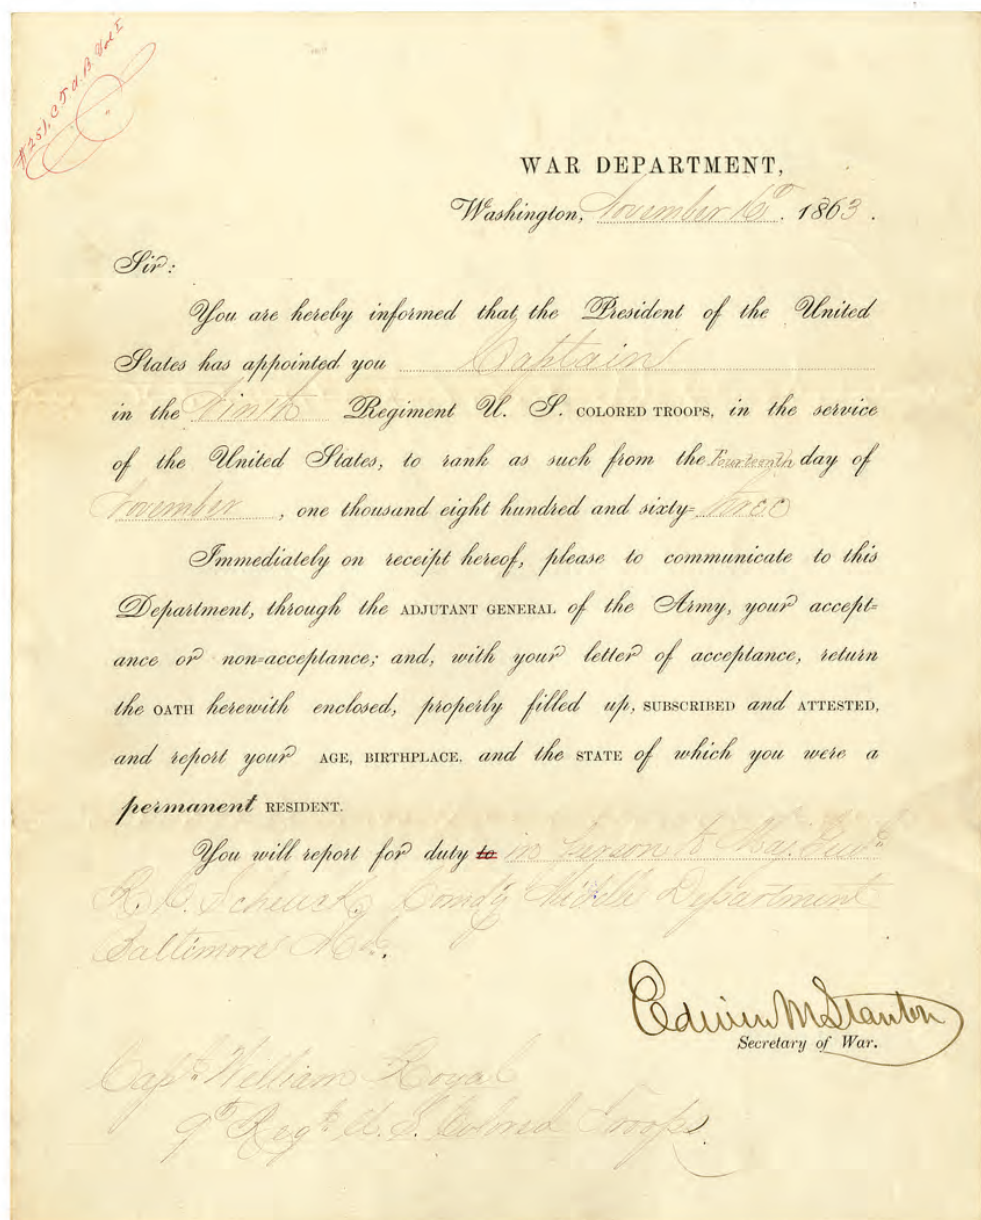 #251, C.T. A.B. Vol I
WAR DEPARTMENT,
Washington, November 16th. 1863.
Sir:
You are hereby informed that the President of the United
States has appointed you Captain
in the Ninth Regiment U. S. COLORED TROOPS, in the service
of the United States, to rank as such from the Fourteenth day of
November, one thousand eight hundred and sixty=three
Immediately on receipt hereof, please to communicate to this
Department, through the ADJUTANT GENERAL of the Army, your accept=
ance or non=acceptance; and, with your letter of acceptance, return
the OATH herewith enclosed, properly filled up, SUBSCRIBED and ATTESTED,
and report your AGE, BIRTHPLACE, and the STATE of which you were a
permanent RESIDENT.
You will report for duty to in person to Maj. Genl.
R. C. Schenck, Comdg Middle Department
Baltimore Md.
Edwin M Stanton
Secretary of War.
Capt. William Royal
9th Regt. U. S. Colored Troops.